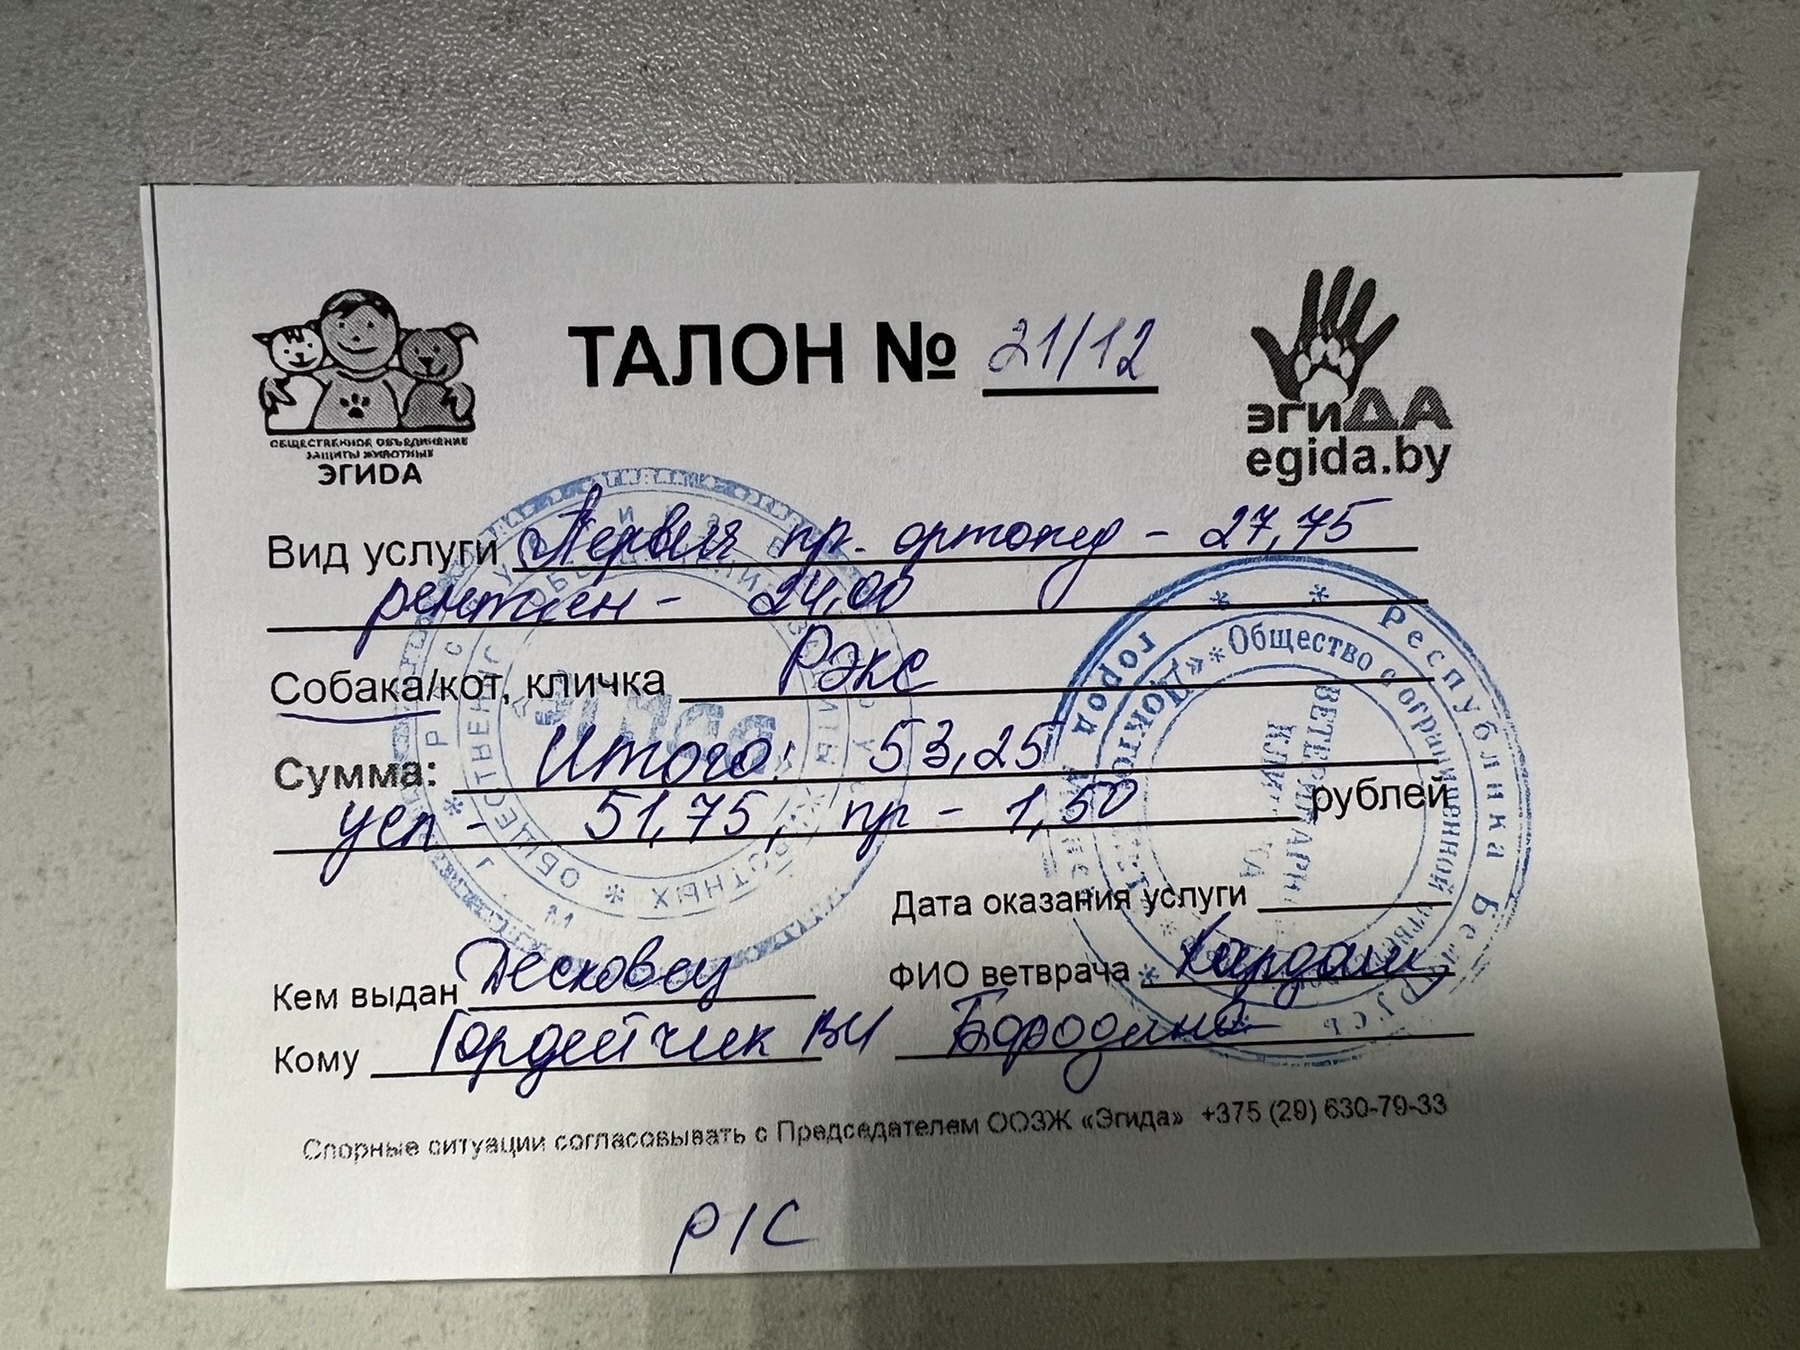 ТАЛОН № 21/12
ОБЩЕСТВЕННОЕ ОБЪЕДИНЕНИЕ
ЗАЩИТЫ ЖИВОТНЫХ
ЭГИДА
эгиДА
egida.by
Вид услуги Первич пр. ортопед - 27,75
рентген - 24,00
Собака/кот, кличка Рэкс
Сумма: Итого: 53,25
усл - 51,75, пр - 1,50 рублей
Дата оказания услуги
Кем выдан Песковец
ФИО ветврача
Кому Гордейчик ВИ
Бородина
Спорные ситуации согласовывать с Председателем ООЗЖ «Эгида» +375 (29) 630-79-33
р/с
Республика Беларусь
город Минск
Общество с ограниченной
ВЕТЕРИНАРНАЯ
КЛИНИКА